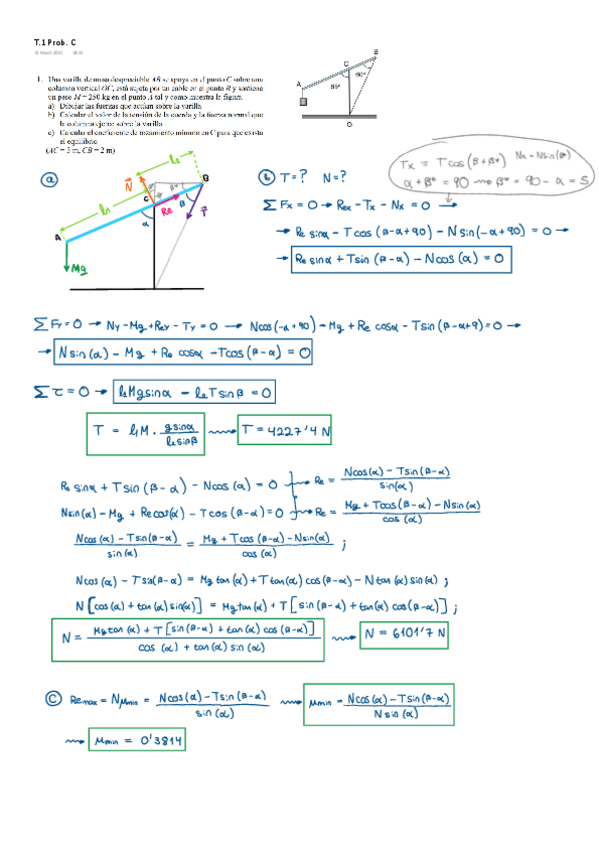 T.1 Prob. C
1. Una varilla de masa despreciable AB se apoya en el punto C sobre una
columna vertical OC, está sujeta por un cable en el punto B y sostiene
un peso M = 250 kg en el punto A tal y como muestra la figura.
a) Dibujar las fuerzas que actúan sobre la varilla
b) Calcular el valor de la tensión de la cuerda y la fuerza normal que
la columna ejerce sobre la varilla
c) Calcular el coeficiente de rozamiento mínimo en C para que exista
el equilibrio
(AC = 3 m, CB = 2 m)
B
C
60°
A
65°
O
a
l₂
N
β*
B
l₁
C
Re
β
T
α
A
Mg
Tx = T cos(β+β*)
α + β* = 90 → β* = 90 - α =
b T=? N=?
∑ Fx = 0 → Rex - Tx - Nx = 0 →
→ Re sinα - T cos (β-α+90) - N sin(-α+90) = 0 →
→ Re sinα + T sin (β-α) - N cos(α) = 0
∑ Fy = 0 → Ny - Mg + Rey - Ty = 0 → N cos(-α+90) - Mg + Re cosα - T sin (β-α+9) = 0 →
→ N sin(α) - Mg + Re cosα - T cos(β-α) = 0
∑ τ = 0 → l₁Mg sinα - l₂T sinβ = 0
T = l₁M · g sinα / l₂ sinβ ⟿ T = 4227'4 N
Re sinα + T sin (β-α) - N cos(α) = 0 → Re = N cos(α) - T sin(β-α) / sin(α)
N sin(α) - Mg + Re cos(α) - T cos(β-α) = 0 → Re = Mg + T cos(β-α) - N sin(α) / cos(α)
N cos(α) - T sin(β-α) / sin(α) = Mg + T cos(β-α) - N sin(α) / cos(α) ;
N cos(α) - T sin(β-α) = Mg tan(α) + T tan(α) cos(β-α) - N tan(α) sin(α) ;
N [cos(α) + tan(α) sin(α)] = Mg tan(α) + T [sin(β-α) + tan(α) cos(β-α)] ;
N = Mg tan(α) + T [sin(β-α) + tan(α) cos(β-α)] / cos(α) + tan(α) sin(α) ⟿ N = 6101'7 N
c Remax = N μmin = N cos(α) - T sin(β-α) / sin(α) ⟿ μmin = N cos(α) - T sin(β-α) / N sin(α)
⟿ μmin = 0'3814